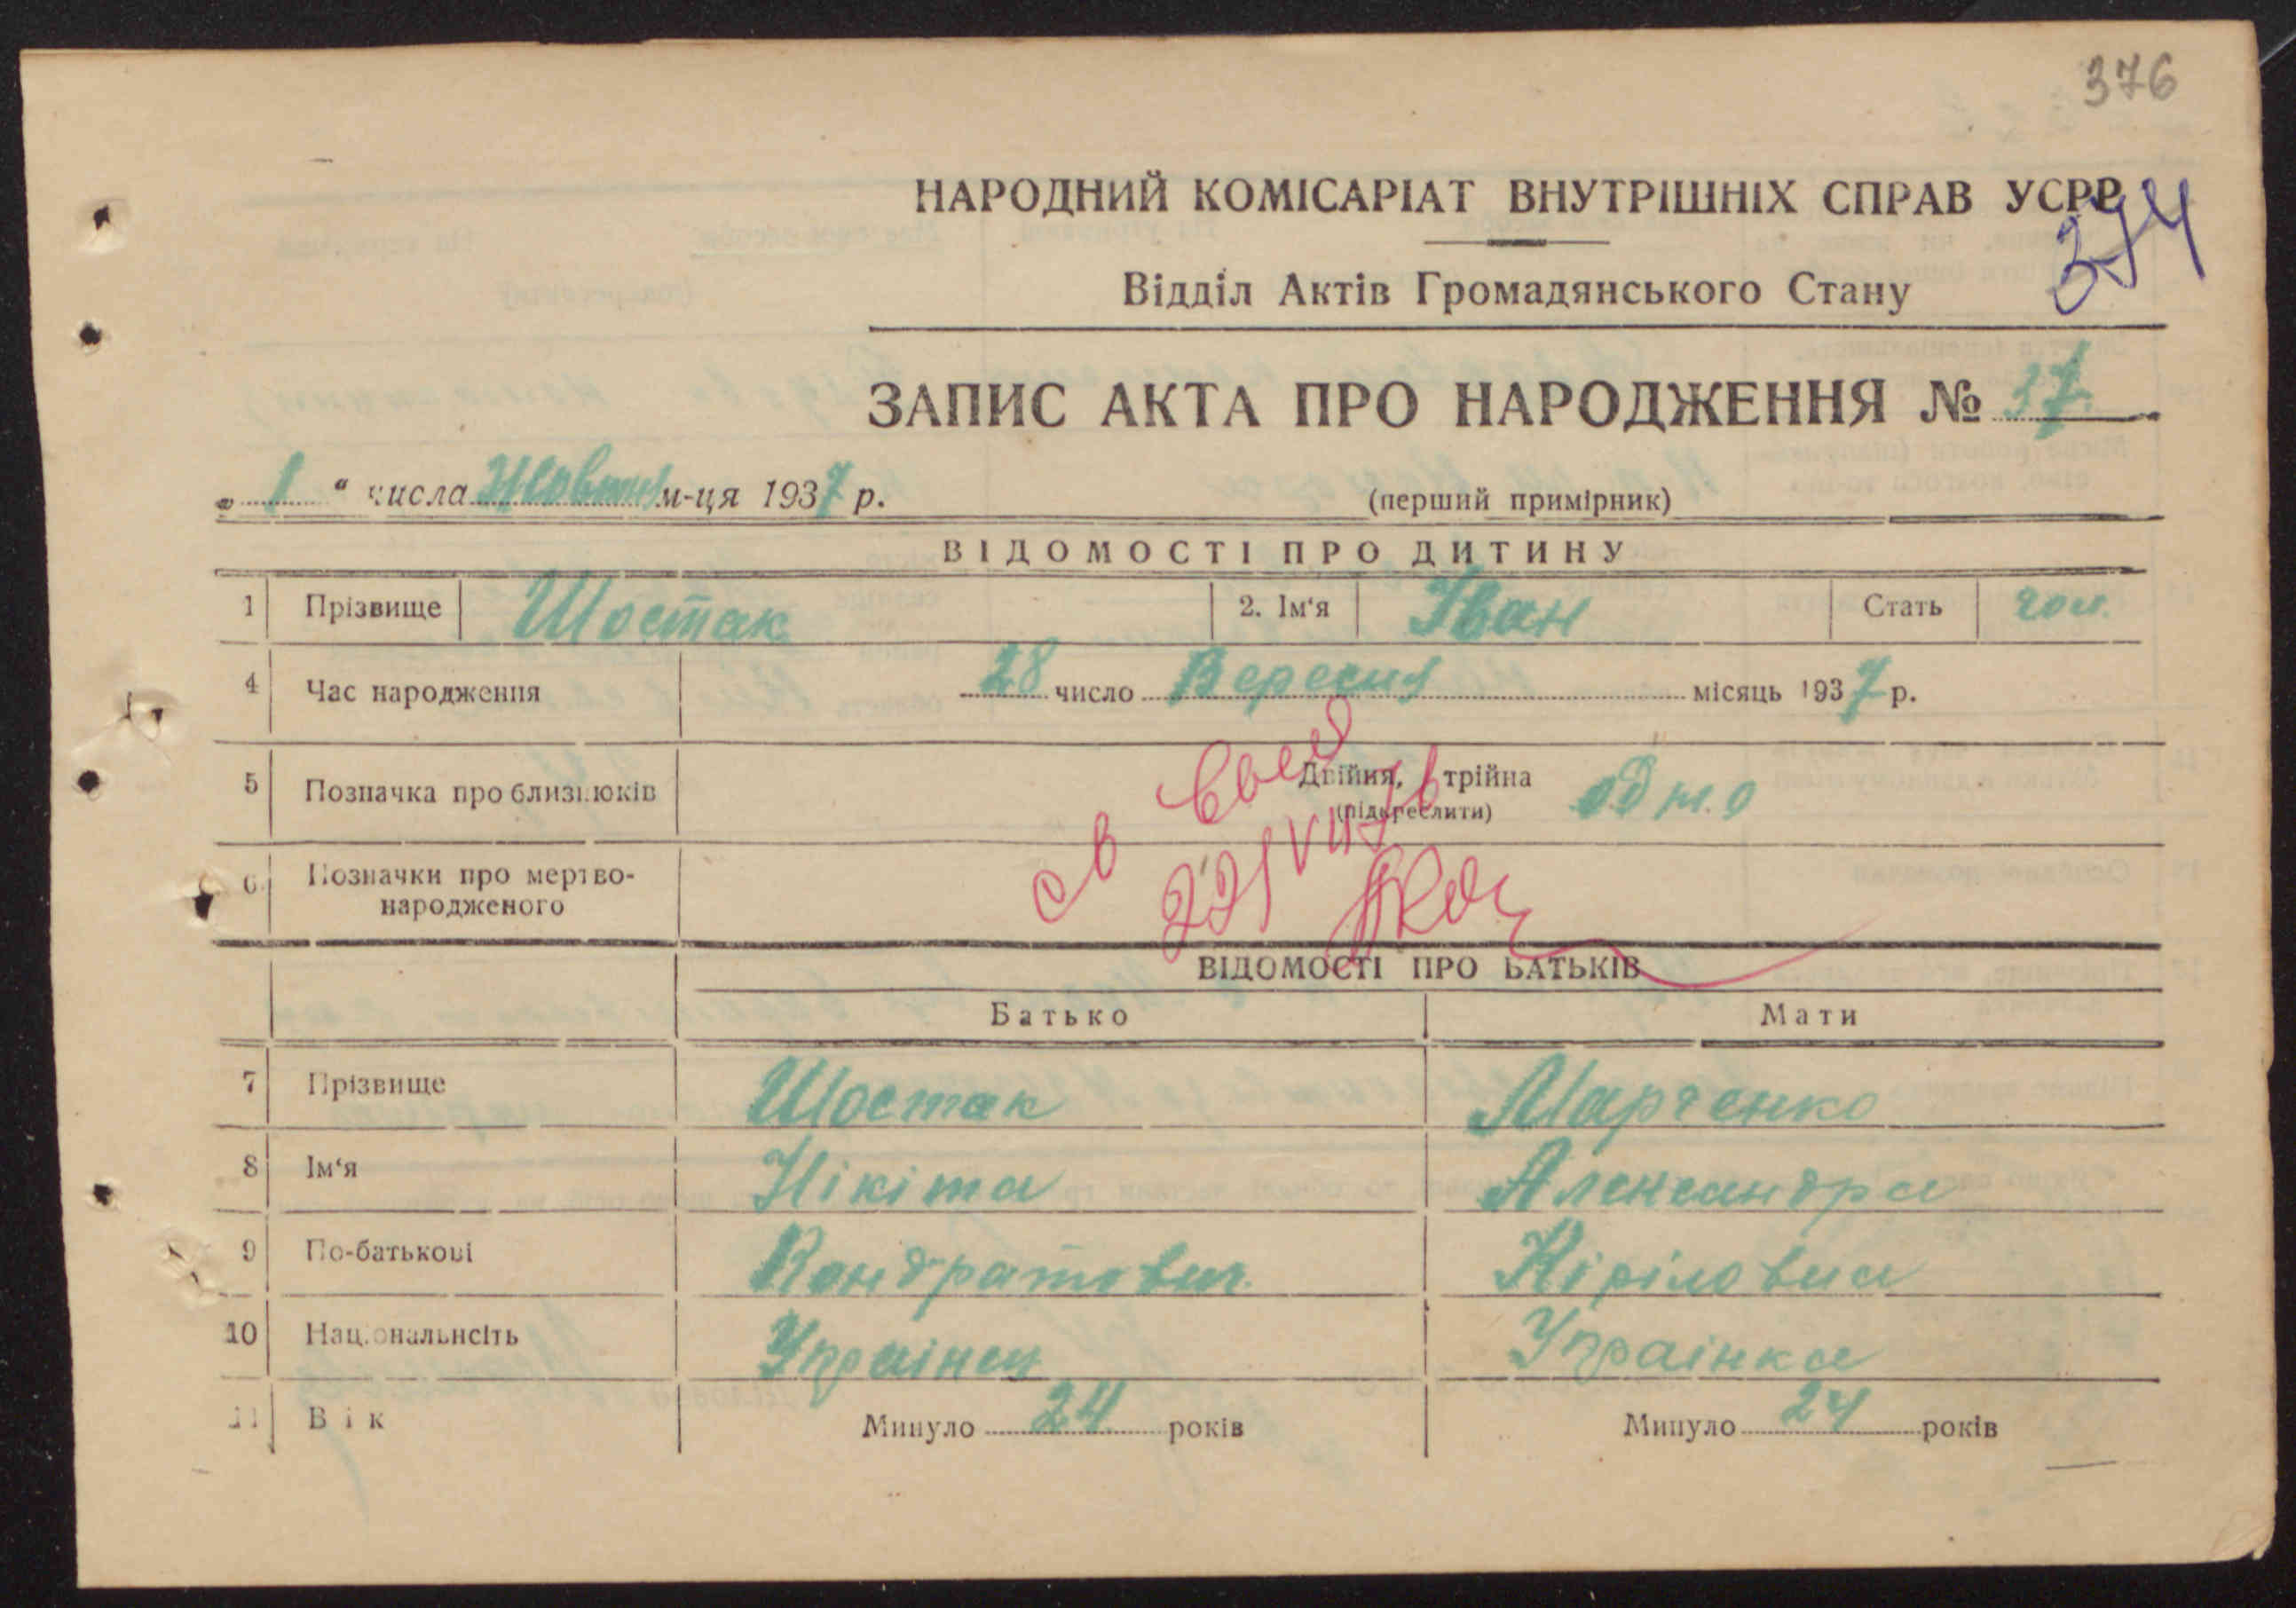 376
НАРОДНИЙ КОМІСАРІАТ ВНУТРІШНІХ СПРАВ УСРР
374
Відділ Актів Громадянського Стану
ЗАПИС АКТА ПРО НАРОДЖЕННЯ № 37
„ 1 “ числа Жовтня м-ця 1937 р.
(перший примірник)
ВІДОМОСТІ ПРО ДИТИНУ
1 Прізвище Шостак 2. Ім‘я Іван Стать чол.
4 Час народження 28 число Вересня місяць 1937 р.
5 Позначка про близнюків Двійня, трійна одно
(підкреслити)
св
6 Позначки про мертво-
народженого
ВІДОМОСТІ ПРО БАТЬКІВ
Батько Мати
7 Прізвище Шостак Марченко
8 Ім‘я Нікіта Александра
9 По-батькові Кондратович Кіріловна
10 Національнсіть Українец Українка
11 Вік Минуло 24 років Минуло 24 років